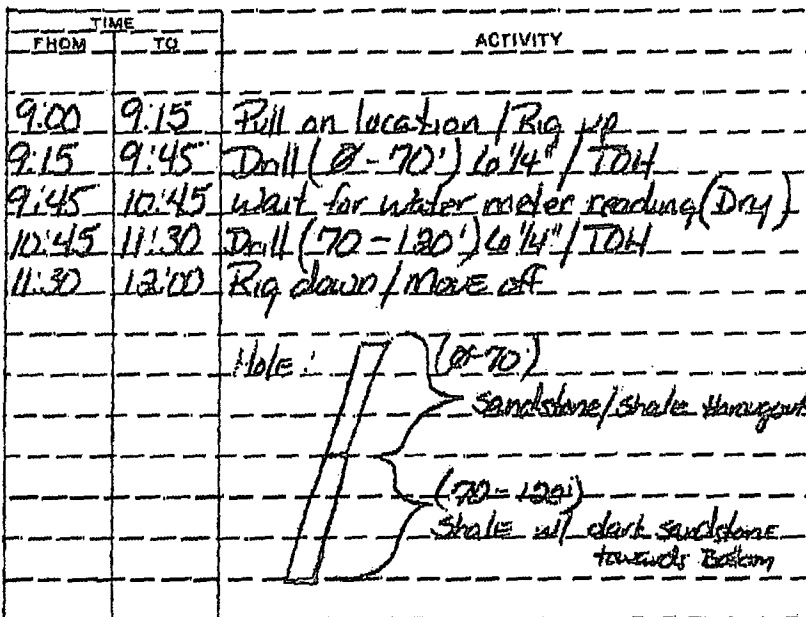 TIME
FROM TO ACTIVITY
9:00 9:15 Pull on location / Rig up
9:15 9:45 Drill (Ø - 70') 6 1/4" / TOH
9:45 10:45 Wait for water meter reading (Dry)
10:45 11:30 Drill (70 - 120') 6 1/4" / TOH
11:30 12:00 Rig down / Move off
Hole: (Ø-70')
Sandstone/Shale througout
(70 - 120')
Shale w/ dark sandstone
towards Bottom